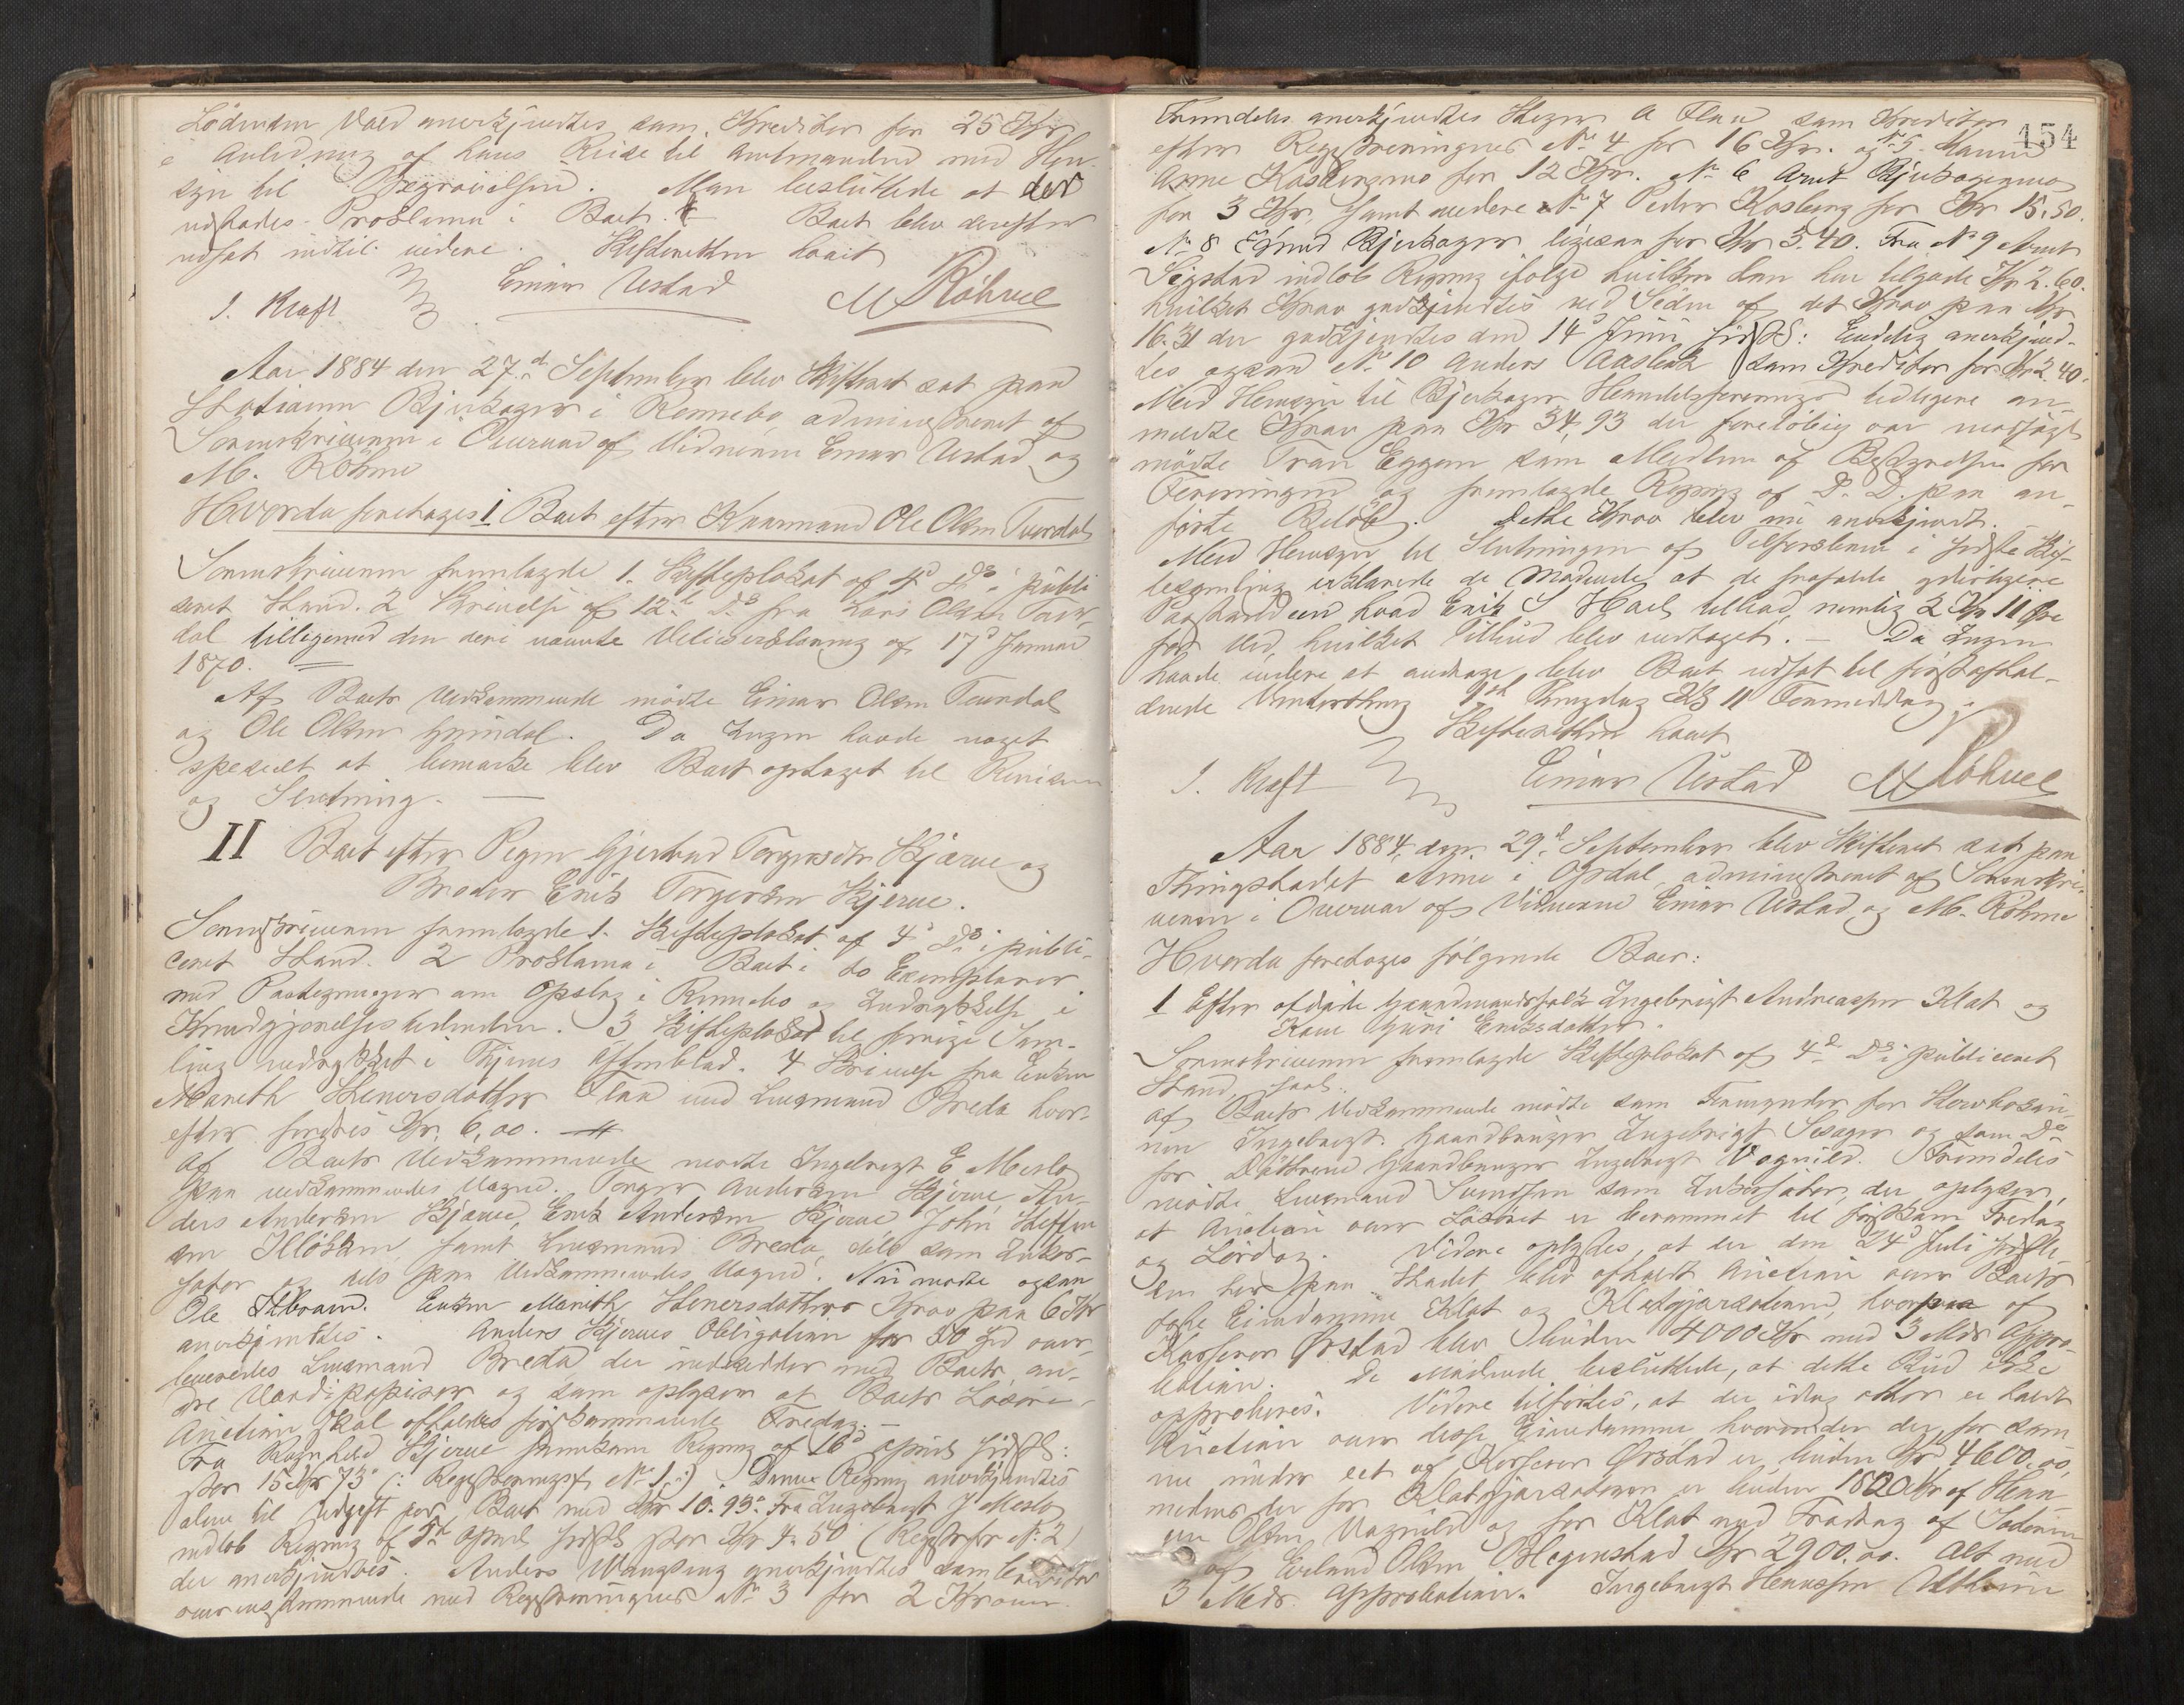 Lödinden Vold anerkjendtes som Kreditor for 25 Kr
i Anledning af hans Reise til Amtmanden med Hen-
syn til Begravelsen. Man besluttede at der
udstædes Proklama i Boet. Boet blev derefter
udsat indtil videre. Skifteretten hævet
J. Kraft Einar Ustad M Röhme
Aar 1884 den 27.d September blev Skifteret sat paa
Stationen Bjerkager i Rennebo, administreret af
Sorenskriveren i Overvær af Vidnerne Einar Ustad og
M. Röhme
Hvorda foretoges 1. Boet efter Kaarmand Ole Olsen Tverdal
Sorenskriveren fremlagde 1. Skifteplakat af 4d Ds i publi
ceret Stand. 2 Skrivelse af 12d Ds fra Lars Olsen
dal tilligemed den deri nævnte af 17d Januar
1870.
Af Boets Vedkommende mödte Einar Olsen
og Ole Olsen Grindal. Da Ingen havde noget
specielt at bemærke blev Boet optaget til Revision
og Slutning.
II Boet efter Pigen Gjertrud Torgersdtr Skjerve og
Broder Erik Torgersen Skjerve.
Sorenskriveren fremlagde 1. Skifteplakat af 4d Ds i publi-
ceret Stand. 2 Proklama i Boet i to Exemplarer
med Paategninger om Opslag i Rennebo og Indrykkelse i
Kundgjörelsestidenden. 3 Skifteplakat til forrige Sam-
ling indrykket i Thjems Aftenblad. 4 Skrivelse fra Enken
Mareth Stenersdatter Flaa med Lensmand Breda hvor-
efter fordres Kr. 6,00.
Af Boets Vedkommende mödte Ingebrigt E Meslo
paa vedkommendes Vegne. Torger Andersen Skjerve An-
ders Andersen Skjerve, Erik Andersen Skjerve John Steffen
sen Illökken samt Lensmand Breda, dels som Inkas-
sator og dels paa Vedkommendes Vegne. Nu mödte ogsaa
Ole Ilbraud. Enken Mareth Stenersdatters Krav paa 6 Kr
anerkjendtes. Anders Skjerves Obligation for 50 Spd over-
leveredes Lensmand Breda der indsidder med Boets an-
dre Værdipapirer og som oplyser at Boets Lösöre-
Auction skal afholdes förstkommende Fredag.
Fra Skjerve fremkom Regning af 16d April sidstl:
stor 15 Kr 73 (: Registreringsf. No 1.:) Denne Regning anerkjendtes
alene til Udgift for Boet med Kr 10.93. Fra Ingebrigt J Meslo
indlöb Regning af 5te April sidstl stor Kr 4.50 (Registr for No 2)
der anerkjendtes. Anders anerkjendtes som Creditor
overensstemmende med Registreringens No 3 for 2 Kroner.
454
Fremdeles anerkjendtes Steger A Flaa som Kreditor
efter Registreringens No 4 for 16 Kr. og No 5. Madam
Anne Kosbergmo for 12 Kr. No 6 Arnt Bjerkagermo
for 3 Kr, samt videre No 7 Peder Kosberg for Kr 15.50.
No 8 Erund Bjerkager ligesaa for Kr 3.40. Fra No 9 Arnt
Segstad indlöb Regning ifölge hvilken han har tilgode Kr 2.60.
hvilket Krav godkjendtes ved Siden af det Krav paa Kr
16.31 der godkjendtes den 14d Juni sidstl: Endelig anerkjend-
tes ogsaa No 10 Anders Aasbak som Kreditor for Kr 2.40.
Med Hensyn til Bjerkager Handelsforenings tidligere an-
meldte Krav paa Kr 34,93 der foreløbig var modsagt
mödte Iver Eggen som Medlem af Bestyrelsen for
Foreningen og fremlagde Regning af D. D. paa an-
förte Belöb. Dette Krav blev nu anerkjendt.
Med Hensyn til Slutningen af Tilförslerne i sidste Skif-
tesamling erklærede de Mödende at de frafaldt yderligere
Paastand end hvad Erik S Hoel tilböd, nemlig 2 Kr 11 Øre
for Ved, hvilket Tilbud blev modtaget. — Da Ingen
havde videre at andrage, blev Boet udsat til förstafhol-
dende Vinterthing 1ste Thingdag Kl 11 Formiddag.
Skifteretten hævet
J. Kraft Einar Ustad M Röhme
Aar 1884, den 29d September blev Skifteret sat paa
Thingstedet Aune i Opdal, administreret af Sorenskri-
veren i Overvær af Vidnerne Einar Ustad og M. Röhme
Hvorda foretoges fölgende Boer:
1 Efter afdöde Gaardmandsfolk Ingebrigt Andreassen Klet og
Kone Guri Eriksdatter.
Sorenskriveren fremlagde Skifteplakat af 4d Ds i publiceret
Stand.
Af Boets Vedkommende mödte som Formynder for Stervbosön-
nen Ingebrigt Gaardbruger Ingebrigt og som Do
for Döttrene Gaardbruger Ingebrigt Vognild. Fremdeles
mödte Lensmand Svendsen som Inkassator, der oplyser,
at Auction over Lösöret er berammet til förstkom Fredag
og Lördag. Videre oplystes, at der den 24d Juli sidstl
en her paa Stedet blev afholdt Auction over Boets
faste Eiendomme Klet og Kletgjærdet, hvorpaa af
Kasserer Ørstad blev buden 4000 Kr med 3 Mdr Appro-
bation. De Mödende besluttede, at dette Bud ikke
approberes. Videre tilförtes, at der idag atter er holdt
Auction over disse Eiendomme hvorunder der for dem
nu under eet af Kasserer Ørstad er buden Kr 4600.00,
medens der for er buden 1800 Kr af Hen-
Olsen Vognild og for Klet med Fradrag af
af Erland Olsen Kr 2900.00. Alt med
3 Mdr. Approbation. Ingebrigt Henriksen